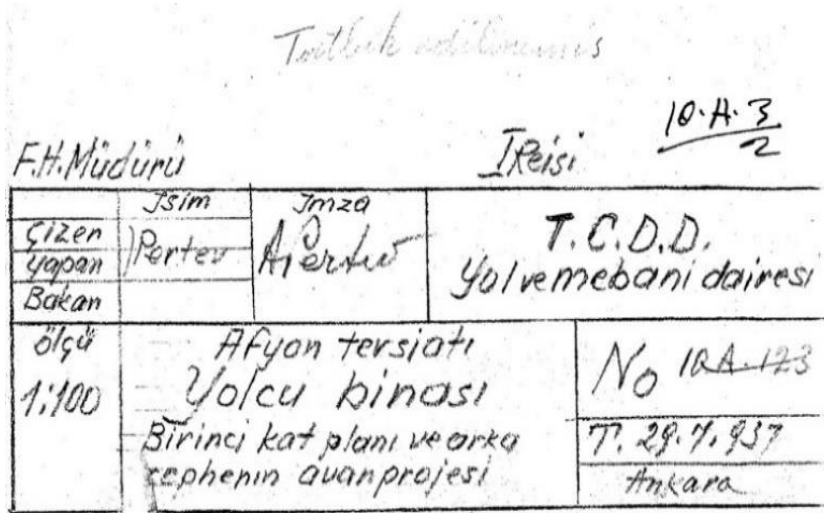 Tatbik edilmemiş
10.A.3
2
F.H.Müdürü
I Reisi
İsim
İmza
Çizen
yapan
Bakan
Pertev
A.Pertev
T.C.D.D.
Yol ve mebani dairesi
ölçü
1:100
Afyon tersiatı
Yolcu binası
Birinci kat planı ve arka
cephenin avanprojesi
No 10.A.123
T. 29.7.937
Ankara